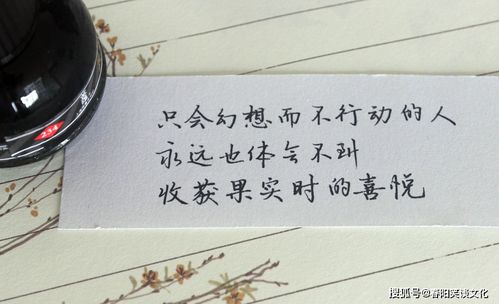 只会幻想而不行动的人
永远也体会不到
收获果实时的喜悦
234
搜狐号@春阳笑谈文化